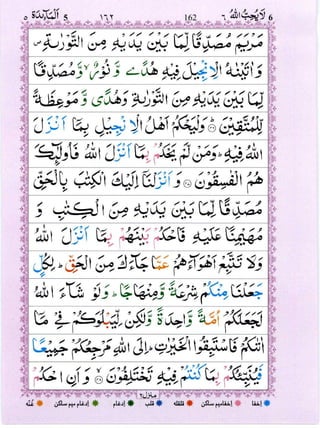 المآئدة ٥ 5 ١٦٢ 162 ٦ لا يحب الله 6
مَرْيَمَ مُصَدِّقًا لِّمَا بَيْنَ يَدَيْهِ مِنَ التَّوْرٰىةِ ۪
وَاٰتَيْنٰهُ الْاِنْجِيْلَ فِيْهِ هُدًى وَّ نُوْرٌ ۙ وَّمُصَدِّقًا
لِّمَا بَيْنَ يَدَيْهِ مِنَ التَّوْرٰىةِ وَهُدًى وَّ مَوْعِظَةً
لِّلْمُتَّقِيْنَ ؕ﴿۴۶﴾ وَلْيَحْكُمْ اَهْلُ الْاِنْجِيْلِ بِمَاۤ اَنْزَلَ
اللهُ فِيْهِ ؕ وَمَنْ لَّمْ يَحْكُمْ بِمَاۤ اَنْزَلَ اللهُ فَاُولٰٓئِكَ
هُمُ الْفٰسِقُوْنَ ﴿۴۷﴾ وَ اَنْزَلْنَاۤ اِلَيْكَ الْكِتٰبَ بِالْحَقِّ
مُصَدِّقًا لِّمَا بَيْنَ يَدَيْهِ مِنَ الْكِتٰبِ وَ
مُهَيْمِنًا عَلَيْهِ فَاحْكُمْ بَيْنَهُمْ بِمَاۤ اَنْزَلَ اللهُ
وَلَا تَتَّبِعْ اَهْوَآءَهُمْ عَمَّا جَآءَكَ مِنَ الْحَقِّ ؕ لِكُلٍّ
جَعَلْنَا مِنْكُمْ شِرْعَةً وَّ مِنْهَاجًا ؕ وَلَوْ شَآءَ اللهُ
لَجَعَلَكُمْ اُمَّةً وَّاحِدَةً وَّلٰكِنْ لِّيَبْلُوَكُمْ فِيْ مَاۤ
اٰتٰىكُمْ فَاسْتَبِقُوا الْخَيْرٰتِ ؕ اِلَى اللهِ مَرْجِعُكُمْ جَمِيْعًا
فَيُنَبِّئُكُمْ بِمَا كُنْتُمْ فِيْهِ تَخْتَلِفُوْنَ ﴿۴۸﴾ وَ اَنِ احْكُمْ
منزل٢
اخفا اخفا ميم ساكن قلقله قلب ادغام ادغام ميم ساكن غنّه